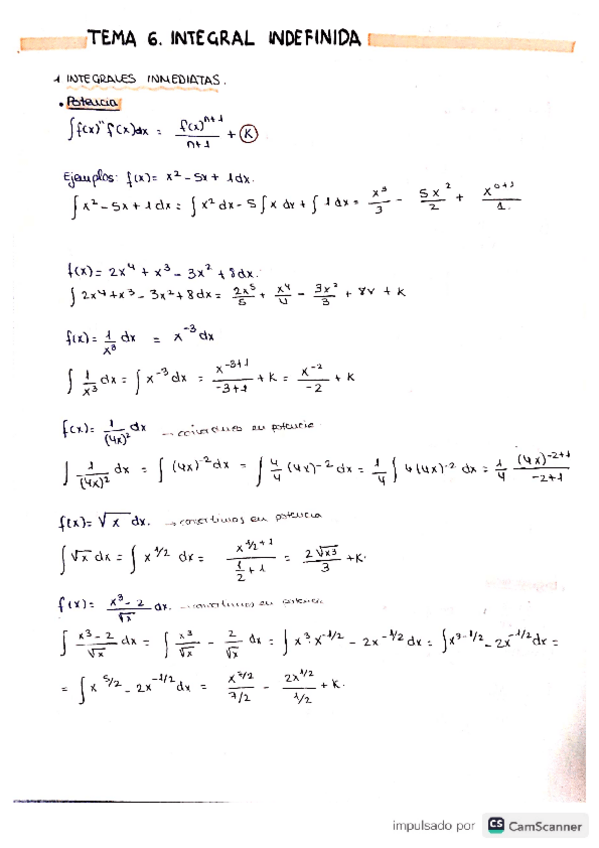 TEMA 6. INTEGRAL INDEFINIDA
1 INTEGRALES INMEDIATAS.
• Potencia
∫f(x)ⁿ f'(x)dx = f(x)ⁿ⁺¹/n+1 + K
Ejemplos: f(x)= x² - 5x + 1 dx.
∫x² - 5x + 1 dx = ∫x² dx - 5∫x dx + ∫1 dx = x³/3 - 5x²/2 + x⁰⁺¹/1.
f(x) = 2x⁴ + x³ - 3x² + 8dx.
∫2x⁴ + x³ - 3x² + 8dx = 2x⁵/5 + x⁴/4 - 3x³/3 + 8x + K
f(x) = 1/x³ dx = x⁻³ dx
∫ 1/x³ dx = ∫x⁻³ dx = x⁻³⁺¹/-3+1 + K = x⁻²/-2 + K
f(x) = 1/(4x)² dx → en potencia
∫ 1/(4x)² dx = ∫(4x)⁻² dx = ∫ 4/4 (4x)⁻² dx = 1/4 ∫ 4(4x)⁻² dx = 1/4 (4x)⁻²⁺¹/-2+1
f(x) = √x dx. → en potencia
∫√x dx = ∫x^1/2 dx = x^1/2+1 / 1/2+1 = 2√x3/3 + K.
f(x) = x³-2/√x dx. → en potencia
∫ x³-2/√x dx = ∫ x³/√x - 2/√x dx = ∫x³·x^-1/2 - 2x^-1/2 dx = ∫x^3-1/2 - 2x^-1/2 dx =
= ∫x^5/2 - 2x^-1/2 dx = x^7/2 / 7/2 - 2x^1/2 / 1/2 + K.
impulsado por CS CamScanner